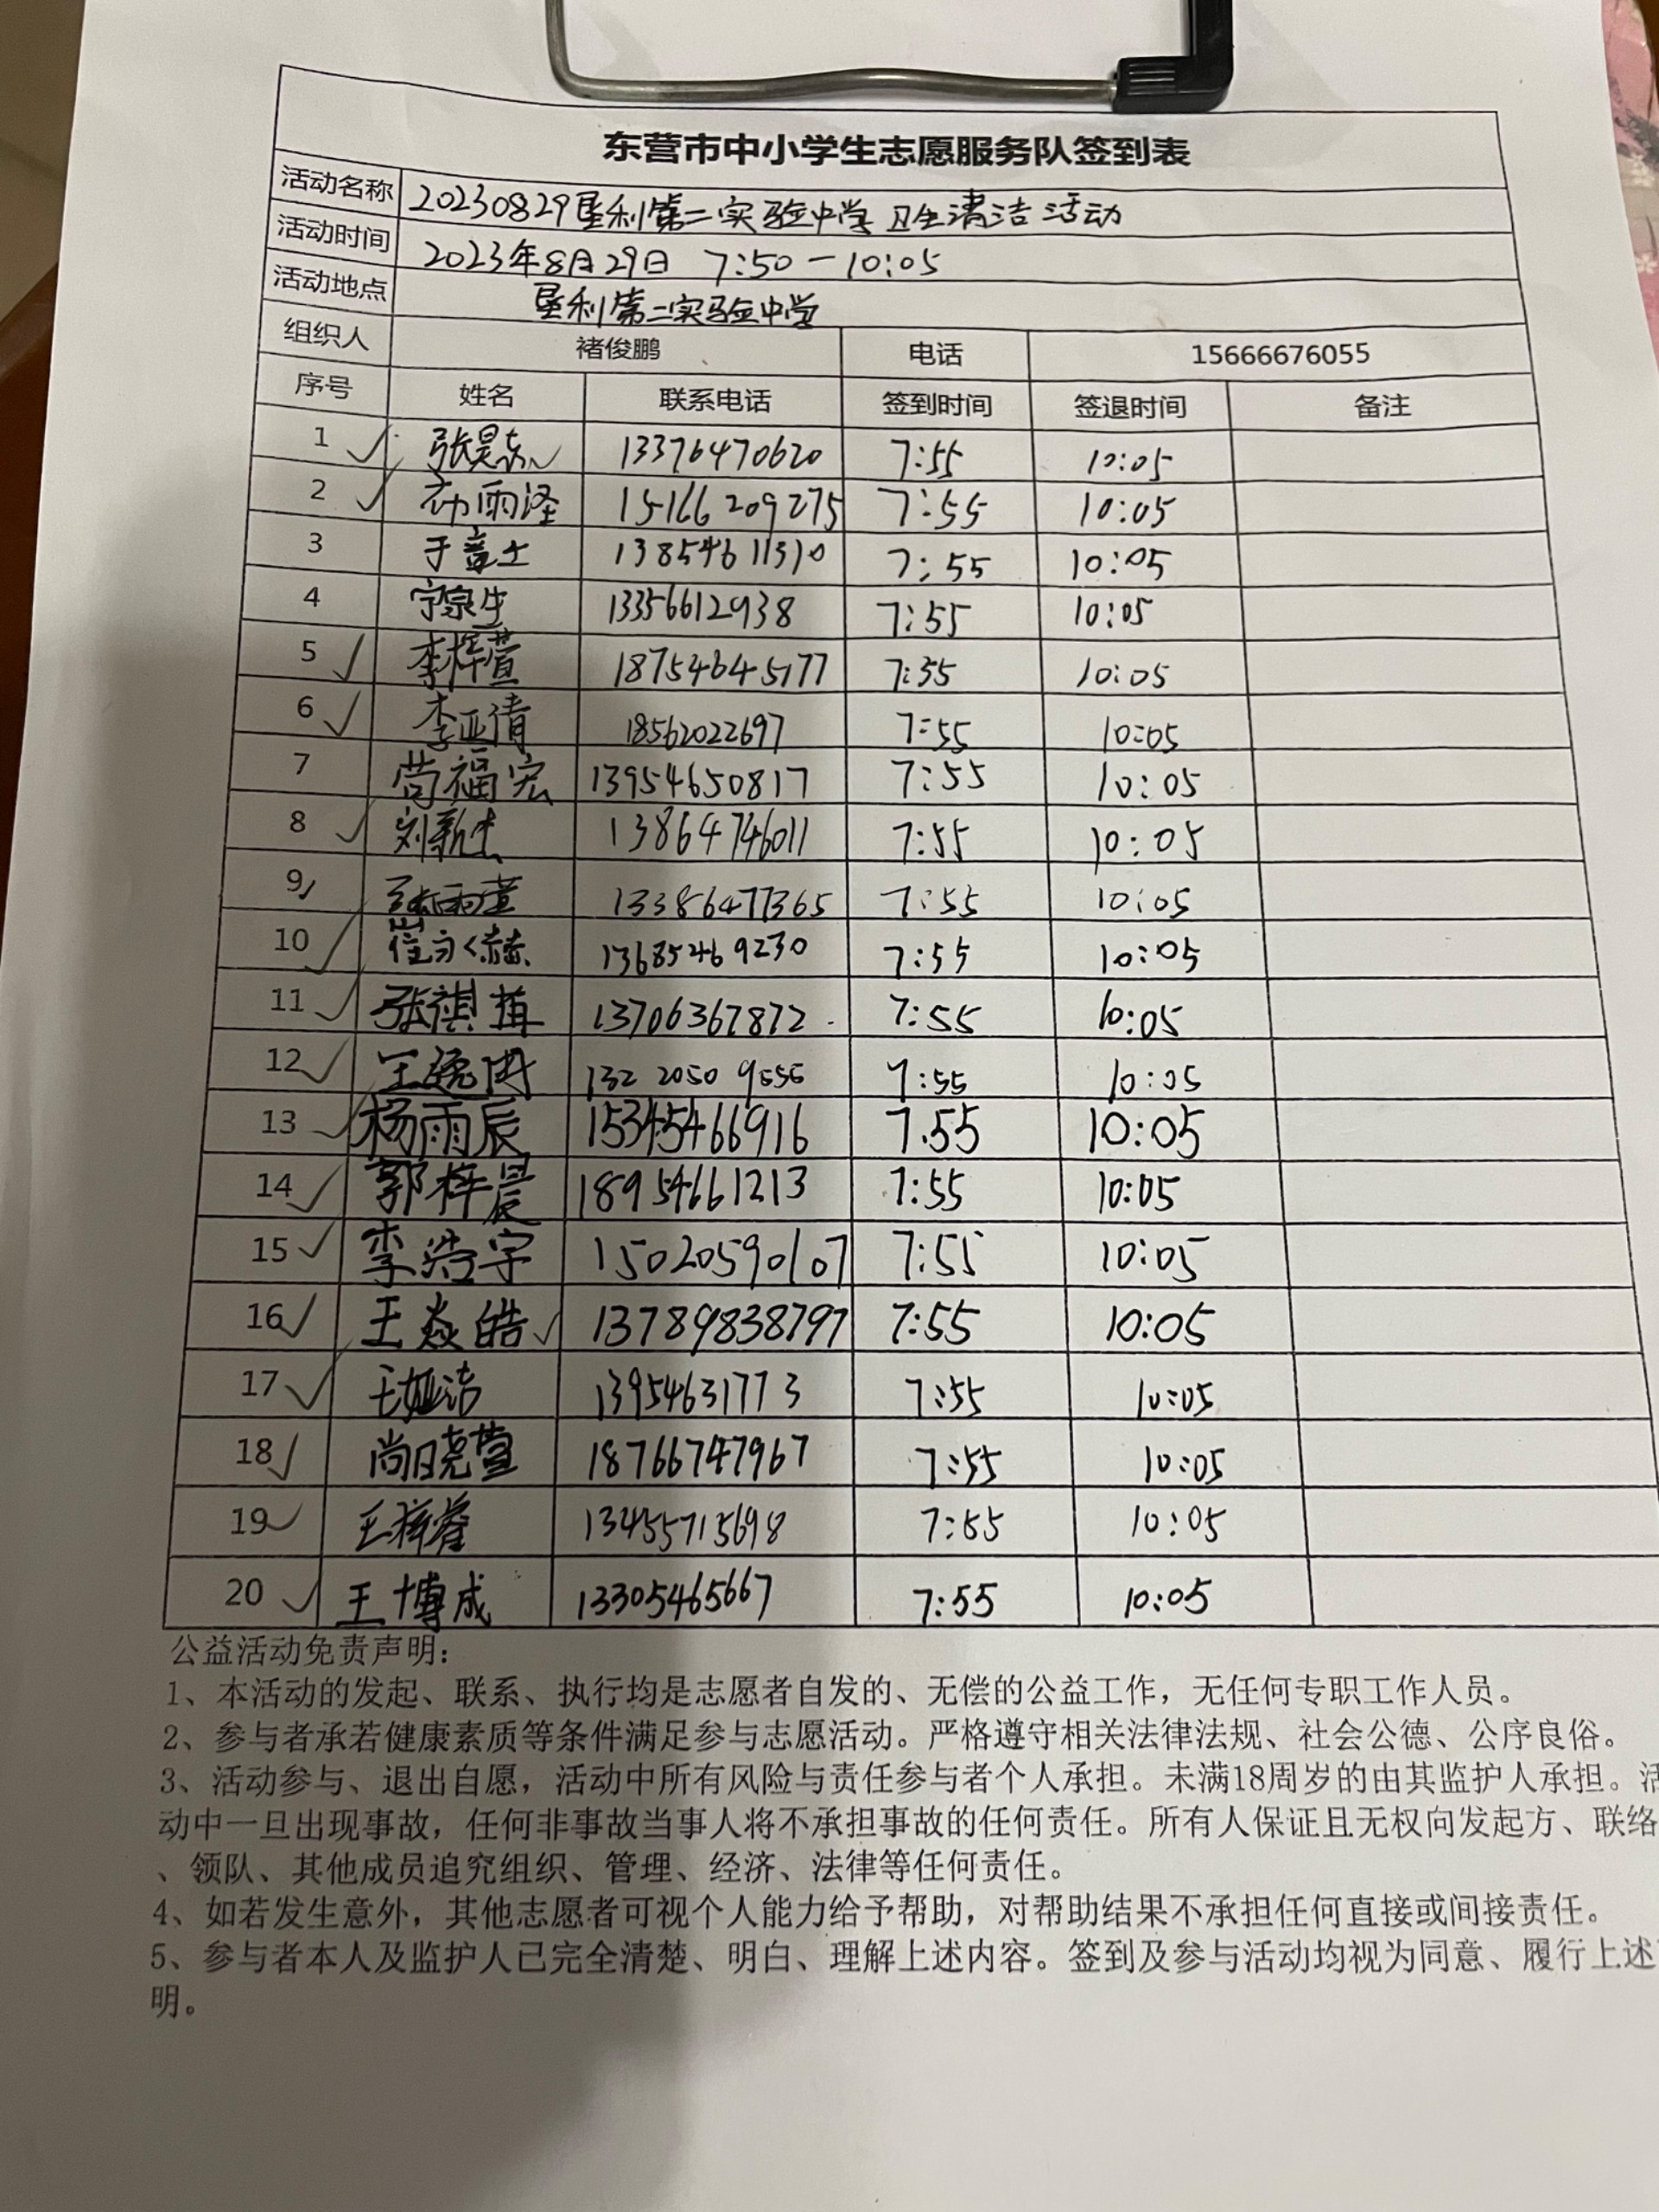 东营市中小学生志愿服务队签到表
活动名称 20230829垦利第二实验中学卫生清洁活动
活动时间 2023年8月29日 7:50—10:05
活动地点 垦利第二实验中学
组织人 褚俊鹏 电话 15666676055
序号 姓名 联系电话 签到时间 签退时间 备注
1 张昊东 13376470620 7:55 10:05
2 雨泽 15166209275 7:55 10:05
3 于 13854611310 7:55 10:05
4 13356612938 7:55 10:05
5 李梓萱 18754645177 7:55 10:05
6 李亚倩 18562022697 7:55 10:05
7 苟福宏 13954650817 7:55 10:05
8 刘新生 13864746011 7:55 10:05
9 张雨萱 13386477365 7:55 10:05
10 崔 13685469230 7:55 10:05
11 张祺 13706367872 7:55 10:05
12 王逸 132 2050 7:55 10:05
13 杨雨辰 15345466916 7.55 10:05
14 郭梓晨 18954661213 7:55 10:05
15 李浩宇 15020590107 7:55 10:05
16 王焱皓 13789838797 7:55 10:05
17 王娅洁 13954631773 7:55 10:05
18 尚晓萱 18766747967 7:55 10:05
19 王梓睿 13455715698 7:55 10:05
20 王博成 13305465667 7:55 10:05
公益活动免责声明：
1、本活动的发起、联系、执行均是志愿者自发的、无偿的公益工作，无任何专职工作人员。
2、参与者承若健康素质等条件满足参与志愿活动。严格遵守相关法律法规、社会公德、公序良俗。
3、活动参与、退出自愿，活动中所有风险与责任参与者个人承担。未满18周岁的由其监护人承担。活
动中一旦出现事故，任何非事故当事人将不承担事故的任何责任。所有人保证且无权向发起方、联络
、领队、其他成员追究组织、管理、经济、法律等任何责任。
4、如若发生意外，其他志愿者可视个人能力给予帮助，对帮助结果不承担任何直接或间接责任。
5、参与者本人及监护人已完全清楚、明白、理解上述内容。签到及参与活动均视为同意、履行上述
明。